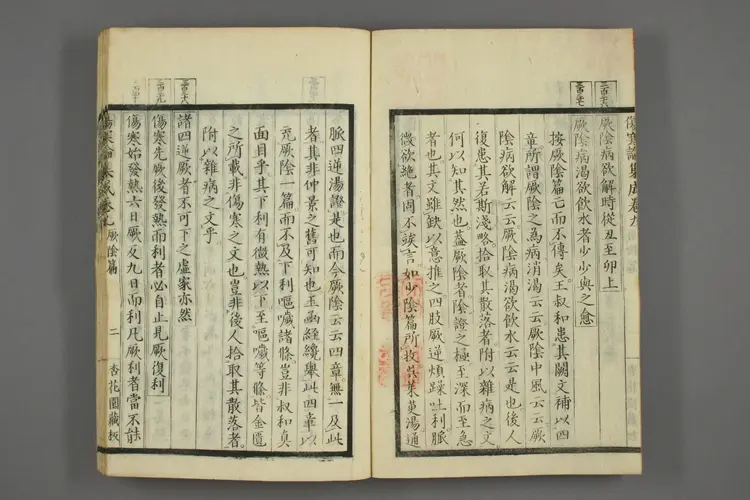 傷寒論集成卷九
三百二十六
厥陰病欲解時從丑至卯上
三百二十七
厥陰病渴欲飲水者少少與之愈
按厥陰篇亡而不傳矣王叔和患其闕文補以四
章所謂厥陰之為病消渴云云厥陰中風云云厥
陰病欲解云云厥陰病渴欲飲水云云是也後人
復患其若斯淺略拾取其散落者附以雜病之文
何以知其然也蓋厥陰者陰證之極至深而至急
者也其文雖缺以意推之四肢厥逆煩躁吐利脈
微欲絶者固不竢言如少陰篇所收吳茱萸湯通
脈四逆湯證是也而今厥陰云云四章無一及此
者其非仲景之舊可知也玉函經纔舉此四章以
充厥陰一篇而不及下利嘔噦諸條豈非叔和真
面目乎其下利有微熱以下至嘔噦等條皆金匱
之所載非傷寒之文也豈非後人拾取其散落者
附以雜病之文乎
三百二十八
諸四逆厥者不可下之虛家亦然
三百二十九
傷寒先厥後發熱而利者必自止見厥復利
傷寒始發熱六日厥反九日而利凡厥利者當不能
傷寒論集成卷九 厥陰篇 二 杏花園藏板